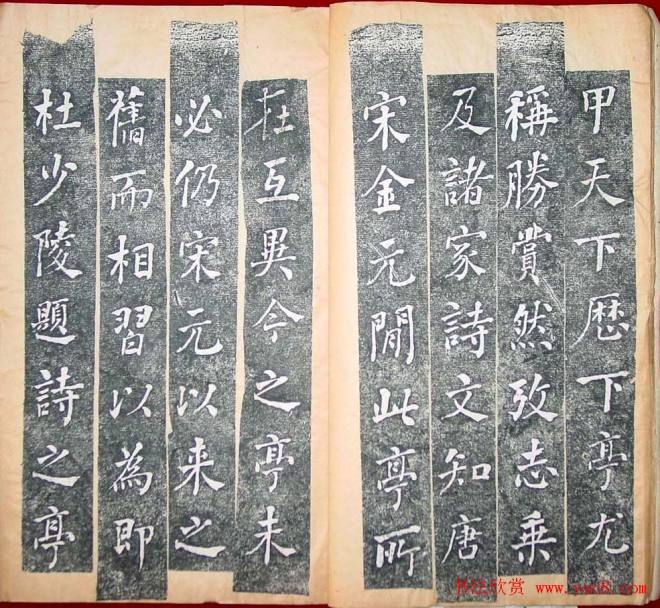 甲天下歷下亭尤
稱勝賞然攷志乗
及諸家詩文知唐
宋金元間此亭所
在互異今之亭未
必仍宋元以来之
舊而相習以為即
杜少陵題詩之亭
书法欣赏 www.yac8.com